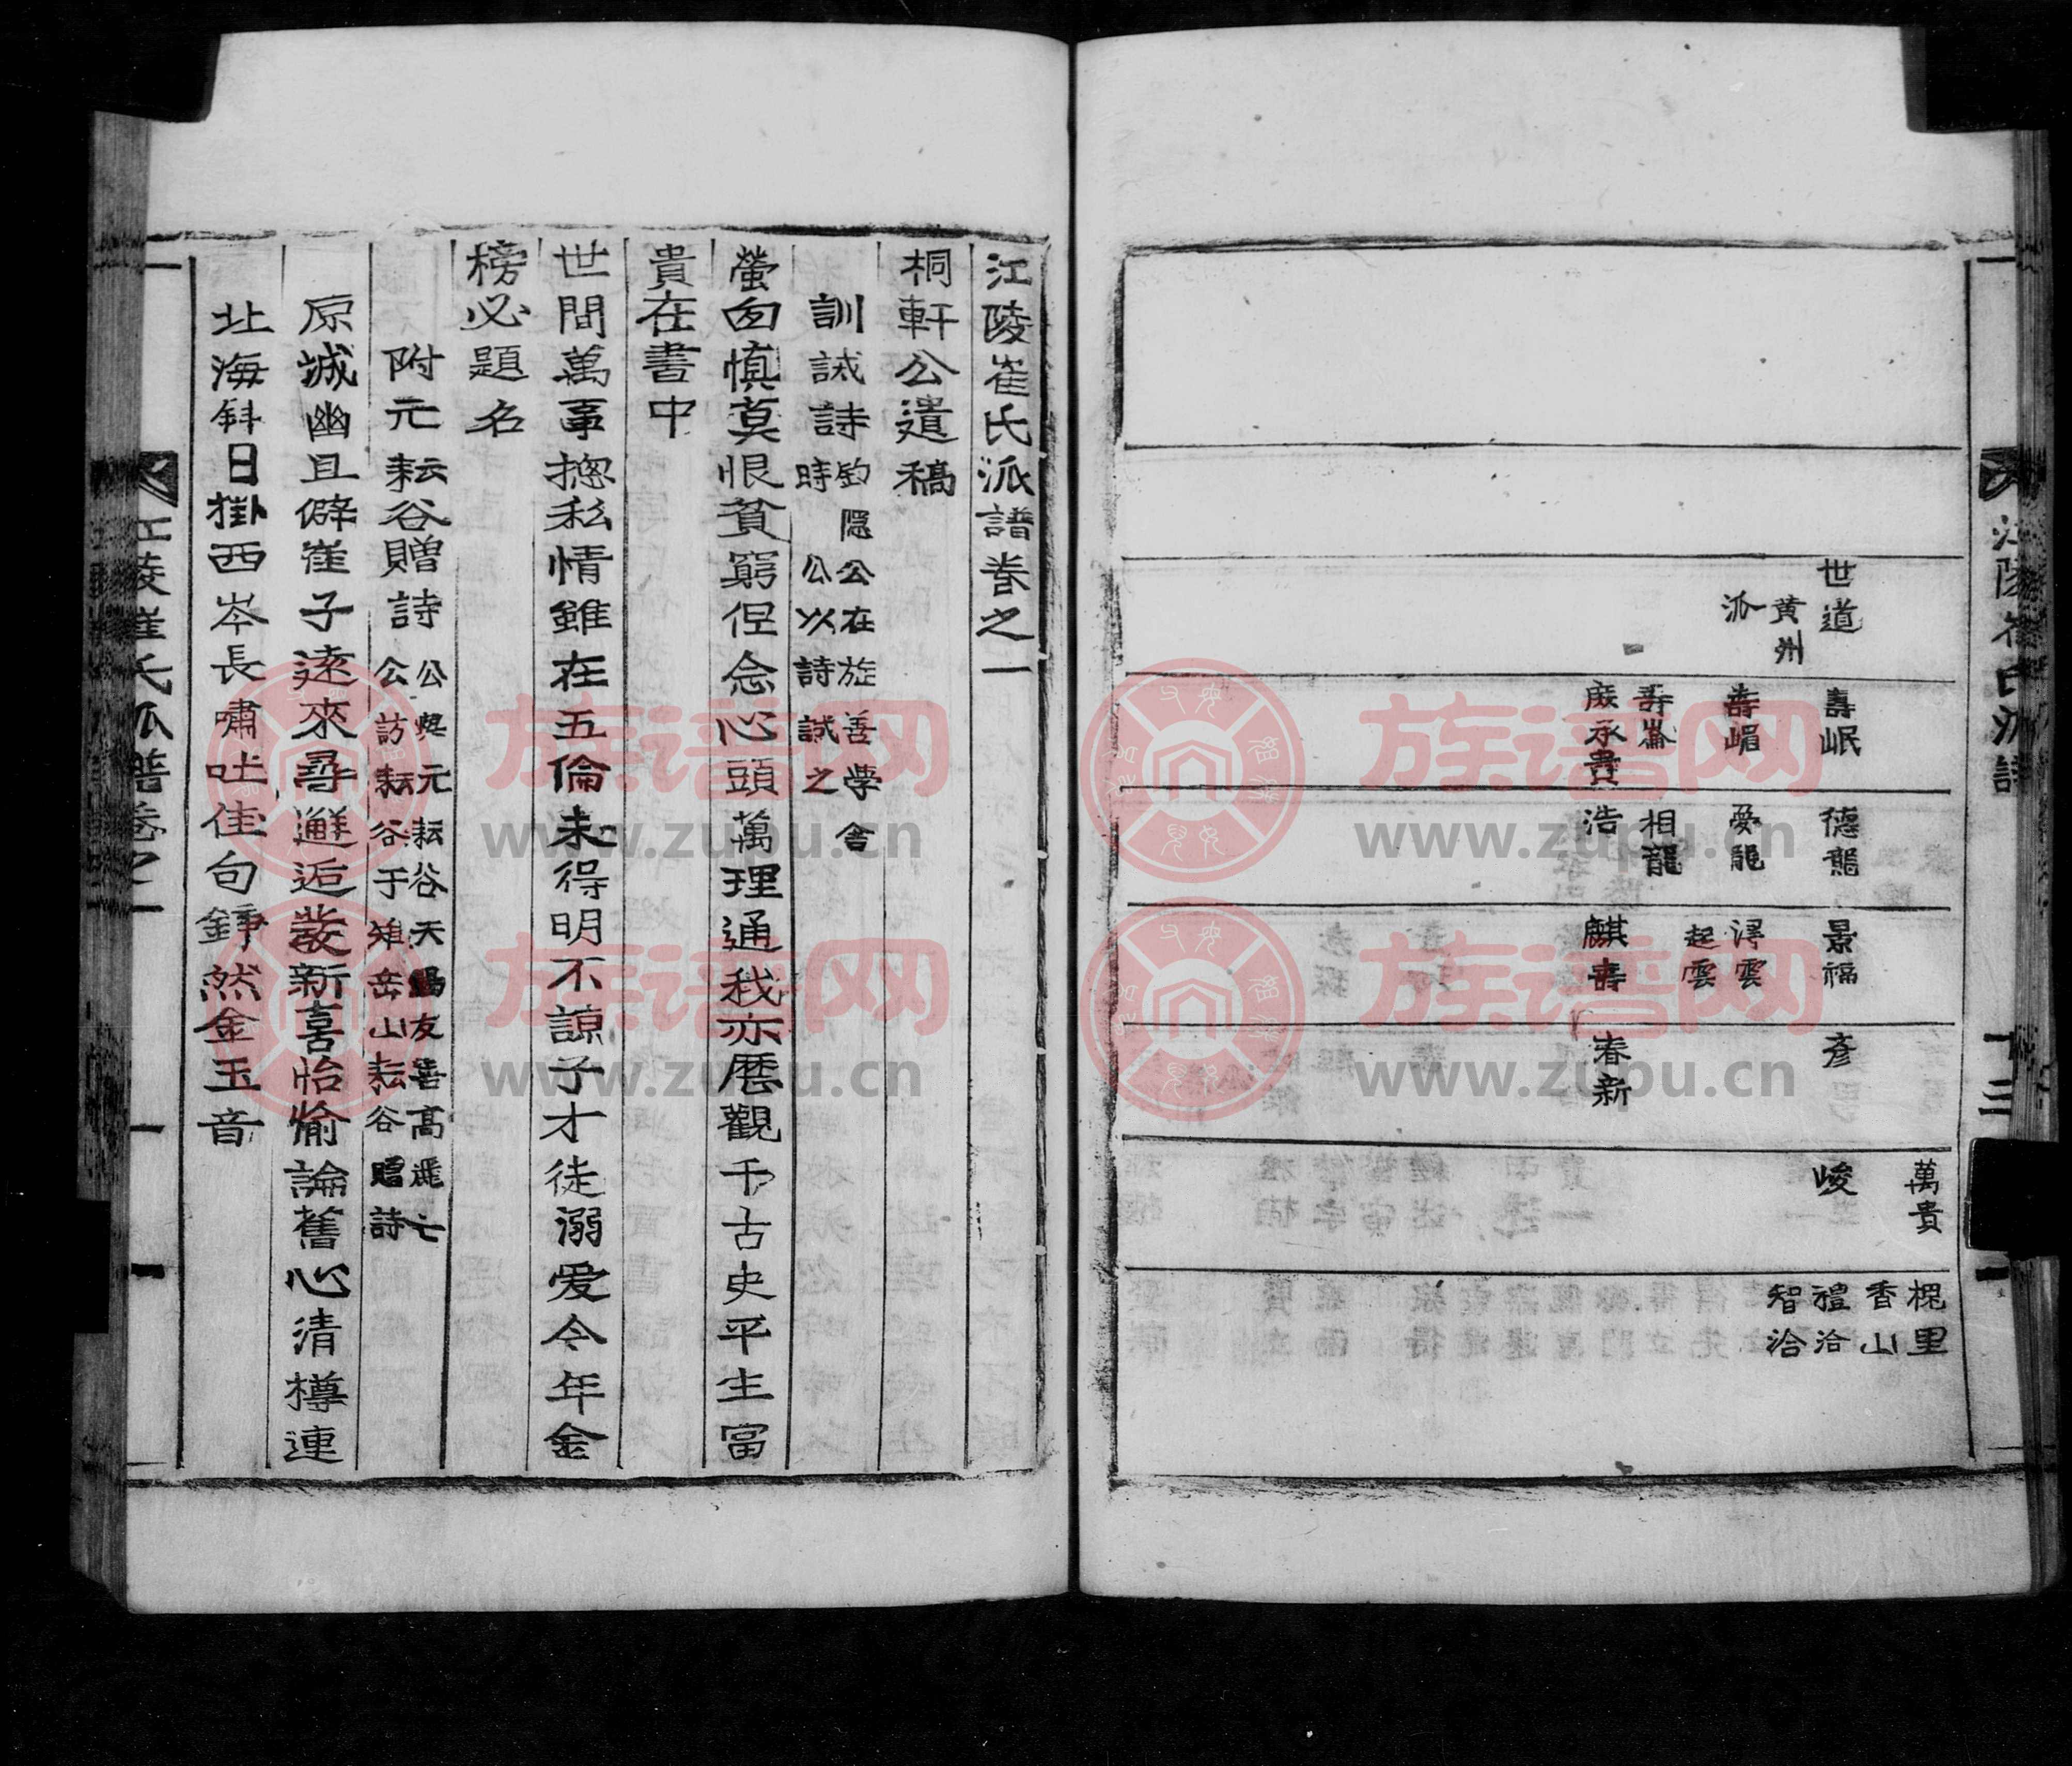 江陵崔氏派譜
十三
萬貴
槐里
香山
峻
禮洽
智洽
世道
黃州
派
壽岷
德龍
景福
彥
壽嵋
愛龍
潯雲
起雲
壽崙
相龍
庶承貴
浩
麒壽
春新
江陵崔氏派譜卷之一
桐軒公遺稿
訓誡詩釣隱公在旋善學舍
時公以詩誡之
螢囱慎莫恨貧窮但念心頭萬理通我亦歷觀千古史平生富
貴在書中
世間萬事揔私情雖在五倫未得明不諒子才徒溺爱今年金
榜必題名
附元耘谷贈詩公與元耘谷天錫友善高麗亡
公訪耘谷于雉岳山耘谷贈詩
原誠幽且僻崔子遠來尋邂逅裝新喜怡愉論舊心清樽連
北海斜日掛西岑長嘯吐佳句錚然金玉音
江陵崔氏派譜卷之一
一
族谱网
www.zupu.cn
族谱网
www.zupu.cn
族谱网
www.zupu.cn
族谱网
www.zupu.cn